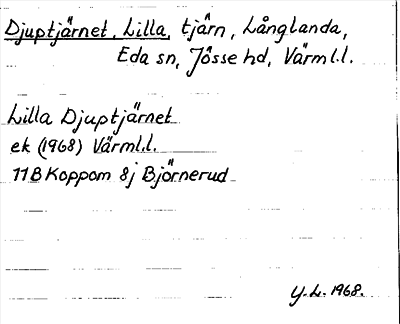 Djuptjärnet, Lilla, tjärn, Långlanda,
Eda sn, Jösse hd, Värml.l.
Lilla Djuptjärnet
ek (1968) Värml.l.
11B Koppom 8j Björnerud
Y.L. 1968.